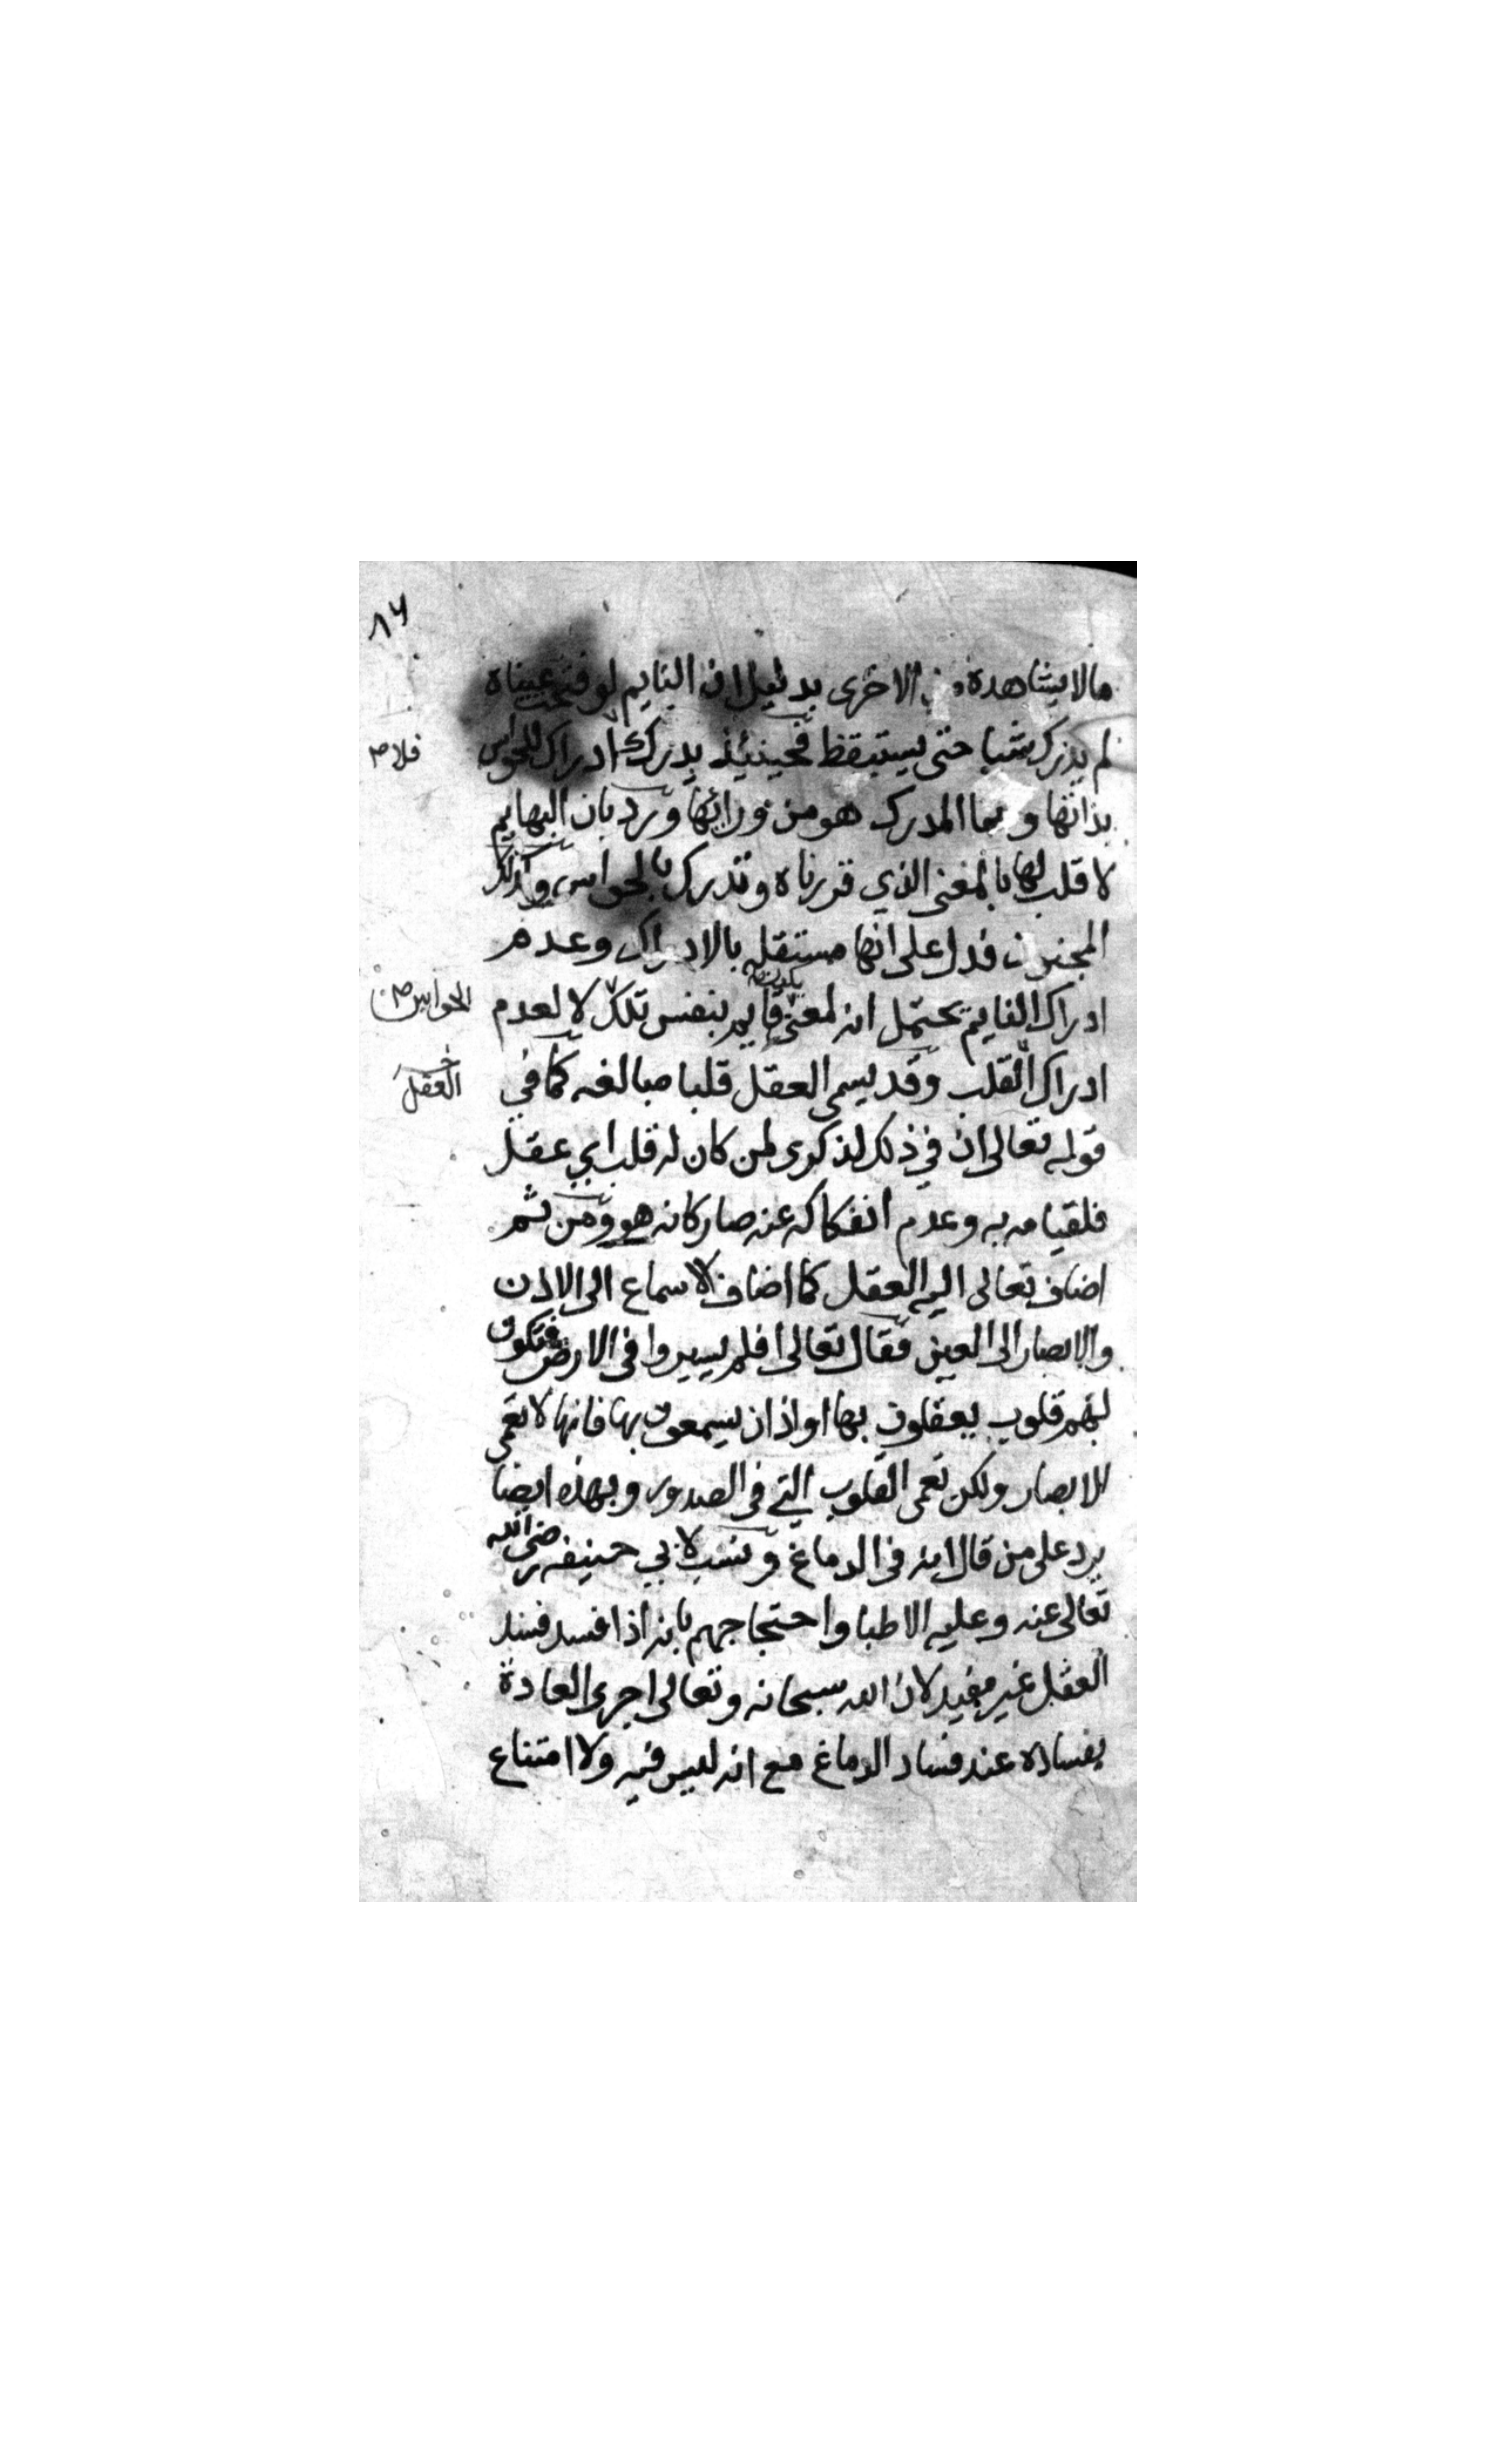 ٨٦
ما لا يشاهده من الاخرى بدليل ان النايم لو فتحت عيناه
لم يدرك شيا حتى يستيقظ فحينئذ يدرك ادراك للحواس
فلا صح
بذاتها وانما المدرك هو من ورائها ورد بان البهايم
لا قلب لها بالمعنى الذي قررناه وتدرك بالحواس وكذلك
المجنون فدل على انها مستقله بالادراك وعدم
ادراك النايم يحتمل انه لمعنى قايم بنفس تلك لا لعدم
يكون
الحواس صح
ادراك القلب وقد يسمى العقل قلبا مبالغه كما في
العقل
قوله تعالى ان في ذلك لذكرى لمن كان له قلب اي عقل
فلقيامه به وعدم انفكاكه عنه صار كانه هو ومن ثم
اضاف تعالى اليه العقل كما اضاف الاسماع الى الاذن
والابصار الى العين فقال تعالى افلم يسيروا في الارض فتكون
لهم قلوب يعقلون بها او اذان يسمعون بها فانها لا تعمى
الابصار ولكن تعمى القلوب التي في الصدور وبهذه ايضا
يرد على من قال انه في الدماغ ونسب لابي حنيفه رضي الله
تعالى عنه وعليه الاطبا واحتجاجهم بانه اذا فسد فسد
العقل غير مفيد لان الله سبحانه وتعالى اجرى العادة
بفساده عند فساد الدماغ مع انه ليس فيه ولا امتناع